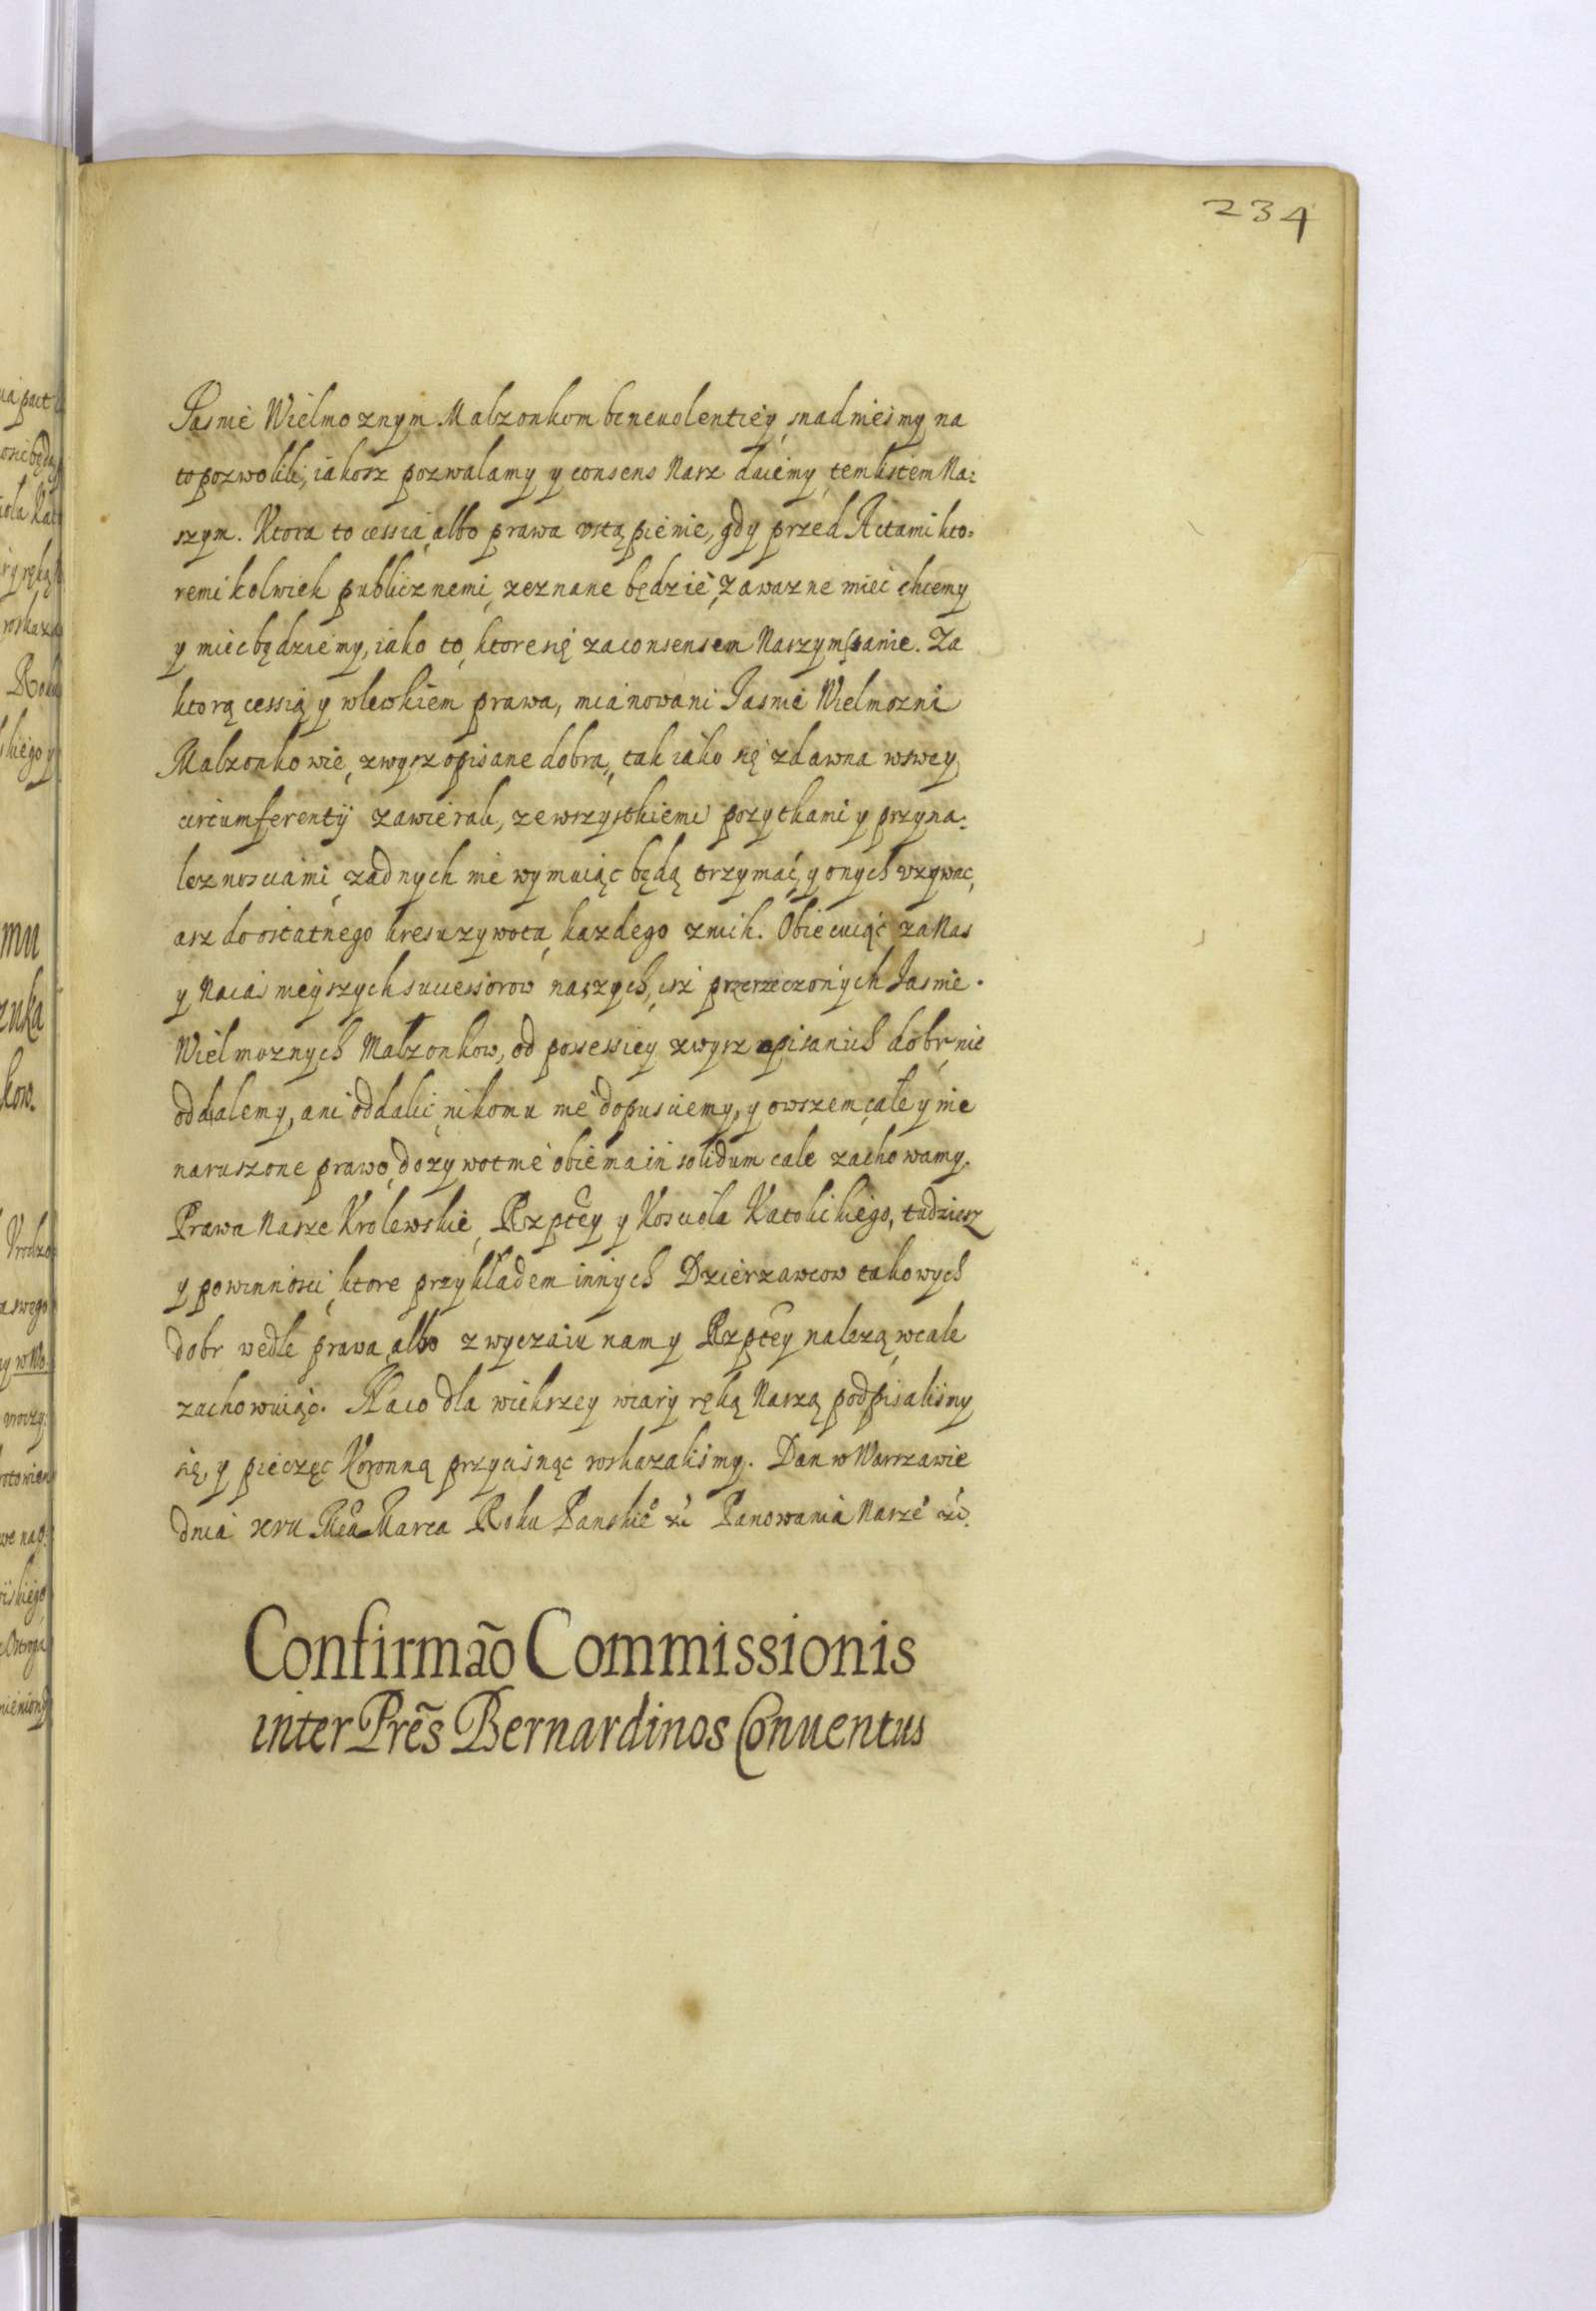 234
Jasnie Wielmoznym Malzonkom beneuolentiey, snadniesmy na
to pozwolili, iakosz pozwalamy y consens Nasz daiemy, tem listem Na:
szym. Ktora to cessia, albo prawa vstąpienie, gdy przed Actami kto:
remi kolwiek publicznemi, zeznane będzie, za wazne miec chcemy
y miec będziemy, iako to, ktore się za consensem Naszym stanie. Za
ktorą cessią y wlewkiem prawa, mianowani Jasnie Wielmozni
Malzonkowie, zwysz opisane dobra, tak iako się zdawna w swey
circumferentÿ zawierali, ze wszystkiemi pozytkami y przyna:
leznosciami, zadnych nie wymuiąc będą trzymać, y onych vzywac,
asz do ostatnego kresu zywota, kazdego znich. Obiecuiąc za Nas
y Naiasnieyszych successorow naszych, isz przerzeczonych Jasnie.
Wielmoznych Malzonkow, od possessiey zwysz opisanich dobr, nie
oddalemy, ani oddalic nikomu nie dopusciemy, y owszem całe y nie
naruszone prawo, dozywotnie obiema in solidum cale zachowamy.
Prawa Nasze Krolewskie, Rzptey y Kosciola Katolickiego, tudziesz
y powinnosci, ktore przykładem innych Dzierzawcow takowych
dobr wedle prawa, albo zwyczaiu nam y Rzptey nalezą, wcale
zachowuiąc. Na co dla wiekszey wiary ręką Naszą podpisalismy
się, y pieczęc Koronną przycisnąc roskazalismy. Dan w Warszawie
dnia Marca Roku Panskie Panowania Nasze
Confirmão Commissionis
inter Pr̃es Bernardinos Conuentus